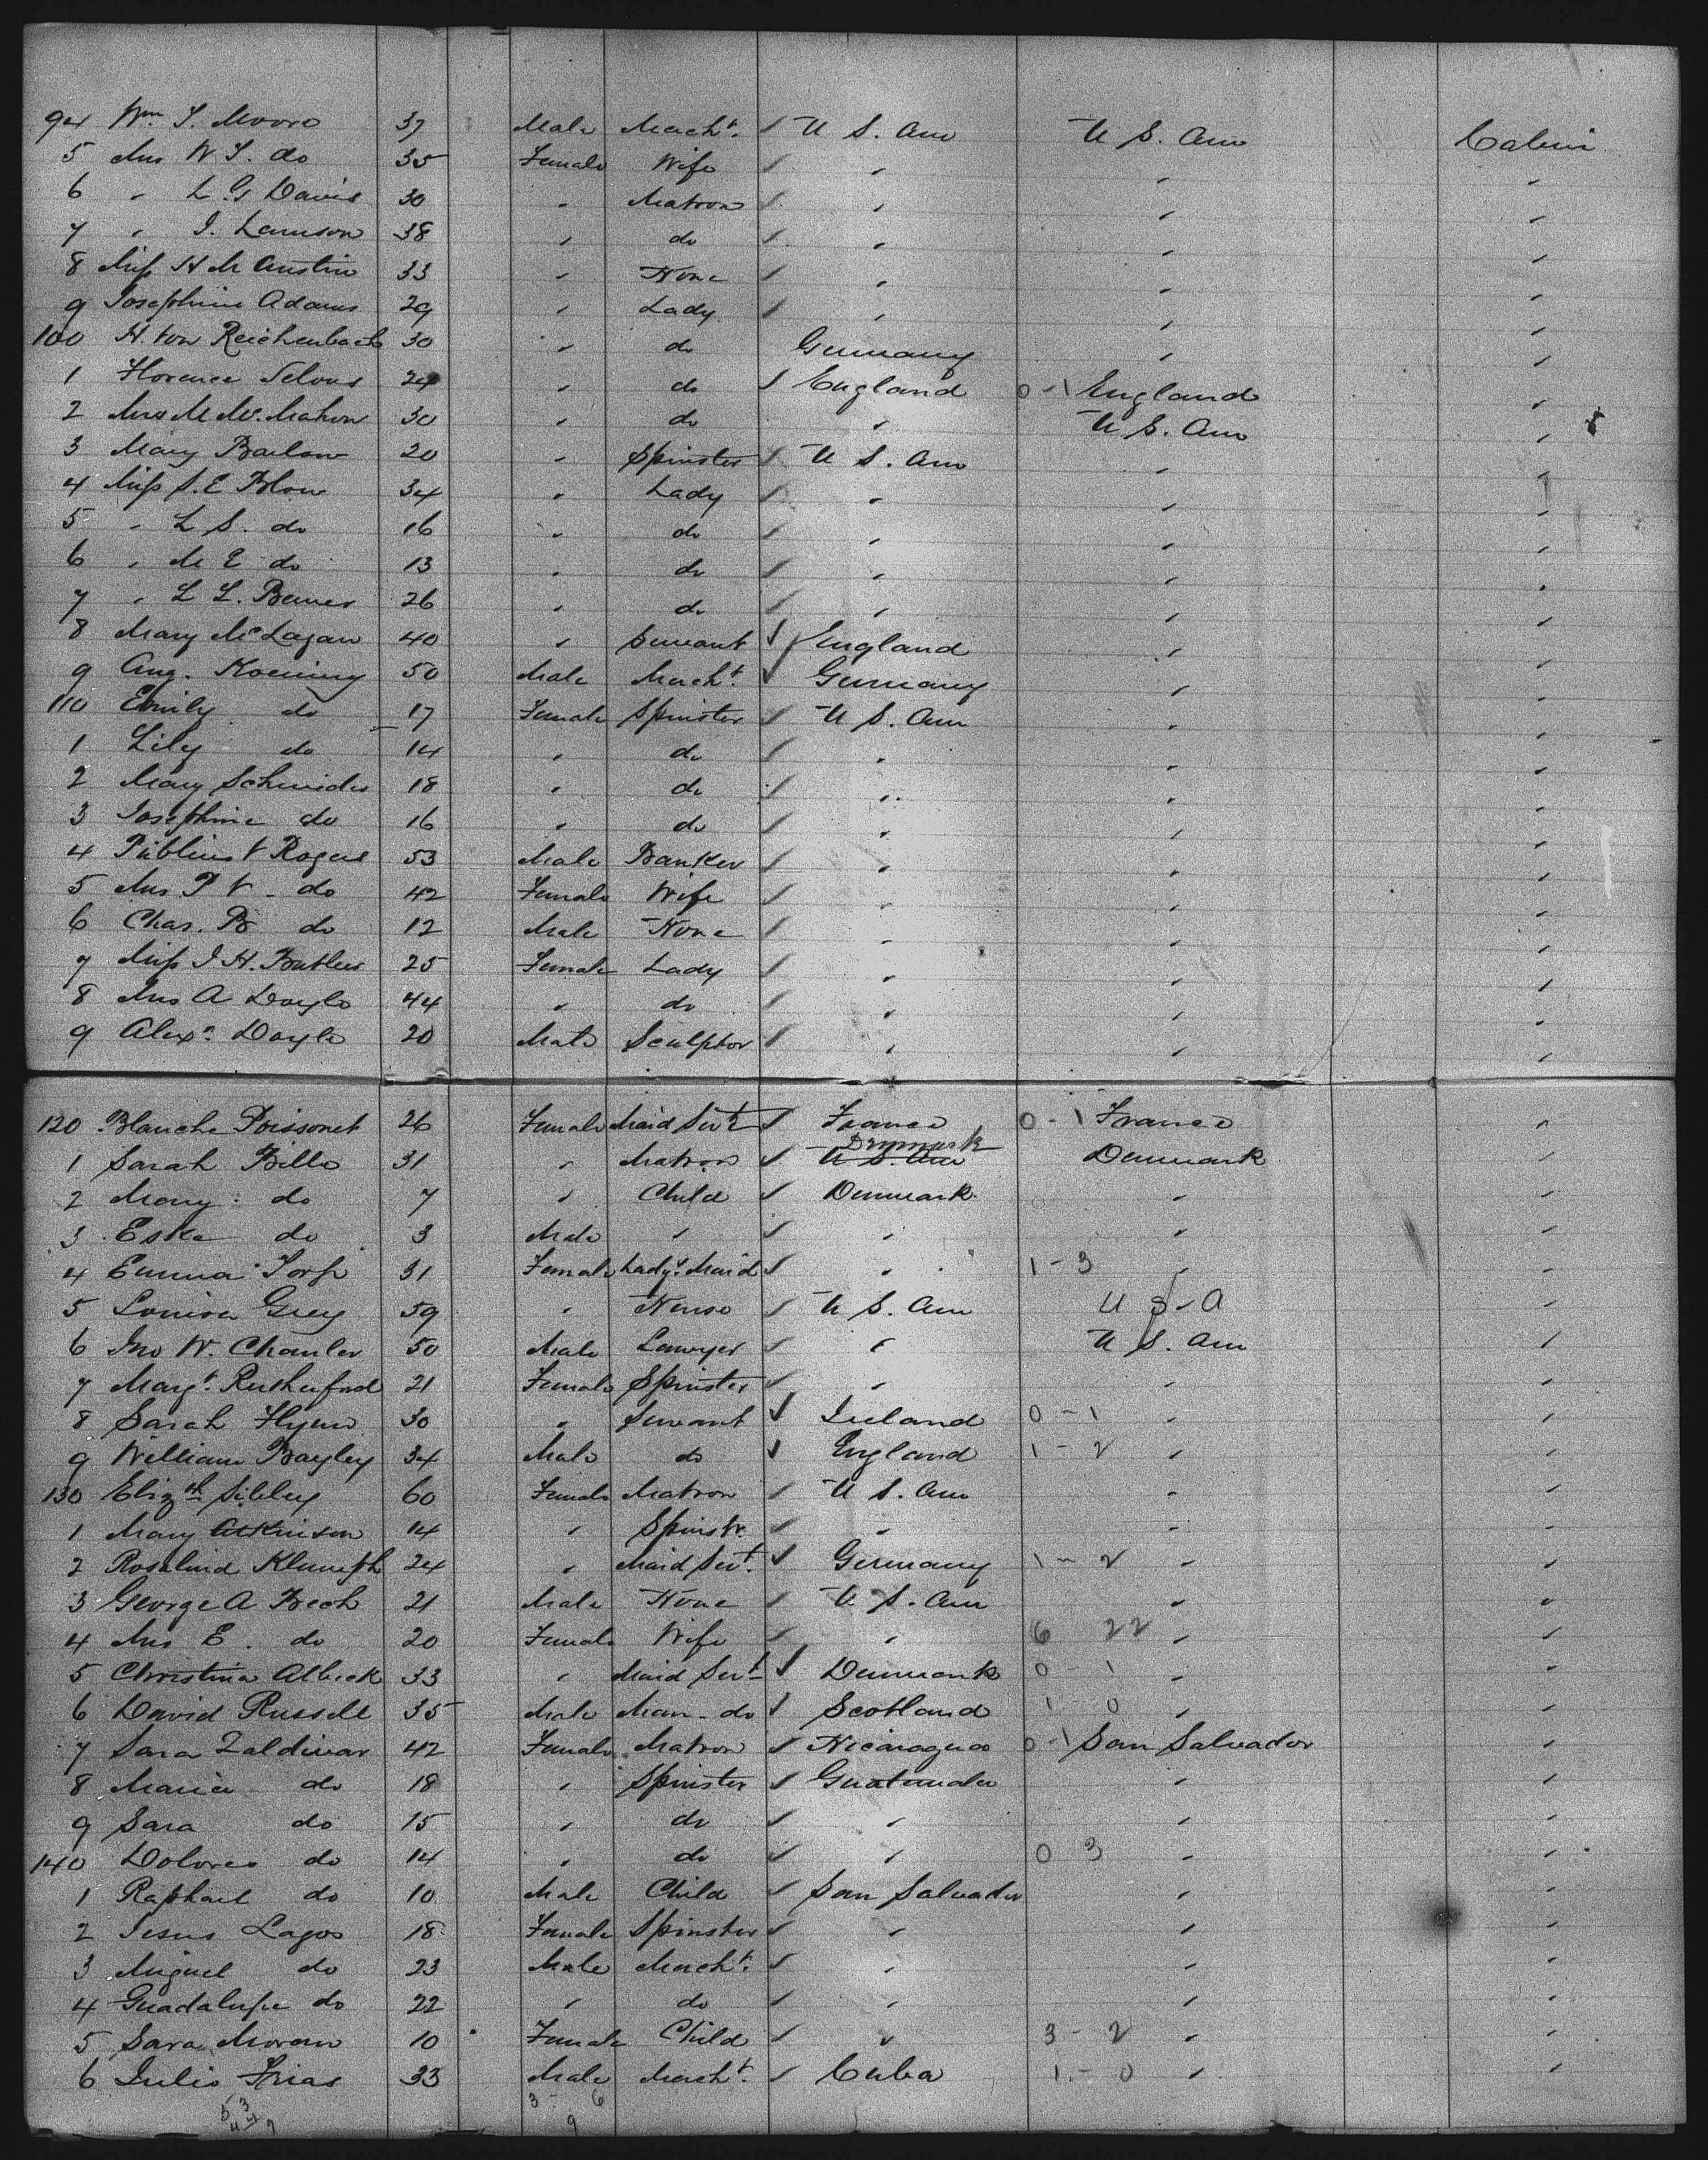 94 Wm. S. Moore 37 Male Macht. U S. Am U S. Am Cabin
5 Mrs W S. do 35 Female Wife " " "
6 " L. G Davis 30 " Matron " " "
7 " I. Lamson 38 " do " " "
8 Miss H M Austin 33 " None " " "
9 Josephine Adams 29 " Lady " " "
100 H. von Reichenbach 30 " do Germany " "
1 Florence Selous 24 " do England 0 - 1 England "
2 Mrs M Mc. Mahon 30 " do " U S. Am "
3 Mary Barlow 20 " Spinster U S. Am " "
4 Miss S. E Blow 34 " Lady " " "
5 " L S. do 16 " do " " "
6 " M E do 13 " do " " "
7 " L L. 26 " do " " "
8 Mary McLagan 40 " Servant England " "
9 Aug. 50 Male Mercht. Germany " "
110 Emily do 17 Female Spinster U S. Am " "
1 Lily do 14 " do " " "
2 Mary Schneider 18 " do " " "
3 Josephine do 16 " do " " "
4 Publius V Rogers 53 Male Banker " " "
5 Mrs P V - do 42 Female Wife " " "
6 Chas. B do 12 Male None " " "
7 Miss J H. Butler 25 Female Lady " " "
8 Mrs A Doyle 44 " do " " "
9 Alexr. Doyle 20 Male Sculptor " " "
120 Blanche Poissonet 26 Female Maid Servt France 0 - 1 France "
Denmark
1 Sarah Bille 31 " Matron U S. Am Denmark "
2 Mary do 7 " Child Denmark " "
3 Eske do 3 Male " " " "
4 Emma Torp 31 Female Lady's Maid " 1 - 3 " "
5 Louisa Grey 59 " Nurse U S. Am U S. A "
6 Jno W. Chanler 50 Male Lawyer " U S. Am "
7 Margt. Rutherford 21 Female Spinster " " "
8 Sarah Flynn 30 " Servant Ireland 0 - 1 " "
9 William Bayley 34 Male do England 1 - 2 " "
130 Elizth Sibley 60 Female Matron U S. Am " "
1 Mary Atkinson 14 " Spinstr. " " "
2 Rosalind Klumpf 24 " Maid Servt. Germany 1 - 2 " "
3 George A Bech 21 Male None U S. Am " "
4 Mrs E. do 20 Female Wife " 6 22 " "
5 Christina Albeck 33 " Maid Servt Denmark 0 1 " "
6 David Russell 35 Male Man - do Scotland 1 0 " "
7 Sara Zaldivar 42 Female Matron Nicaragua 0 - 1 San Salvador "
8 Maria do 18 " Spinster Guatemala " "
9 Sara do 15 " do " " "
140 Dolores do 14 " do " 0 3 " "
1 Raphael do 10 Male Child San Salvador " "
2 Jesus Lagos 18 Female Spinster " " "
3 Miguel do 23 Male Mercht. " " "
4 Guadalupe do 22 " do " " "
5 Sara Moran 10 Female Child " 3 - 2 " "
6 Julio Frias 33 Male Mercht. Cuba 1 - 0 " "
3 - 6
9